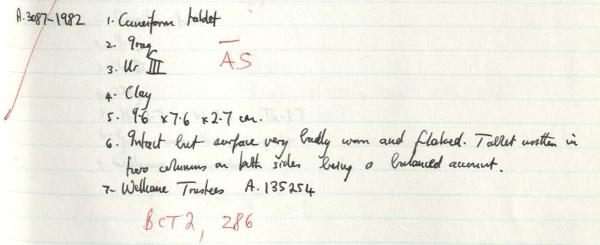 A.3087-1982 1. Cuneiform tablet
2. Iraq
3. Ur III AS
4. Clay
5. 9.6 x 7.6 x 2.7 cm.
6. Intact but surface very badly worn and flaked. Tablet written in
two columns on both sides being a balanced account.
7. Wellcome Trustees A.135254
BCT2, 286